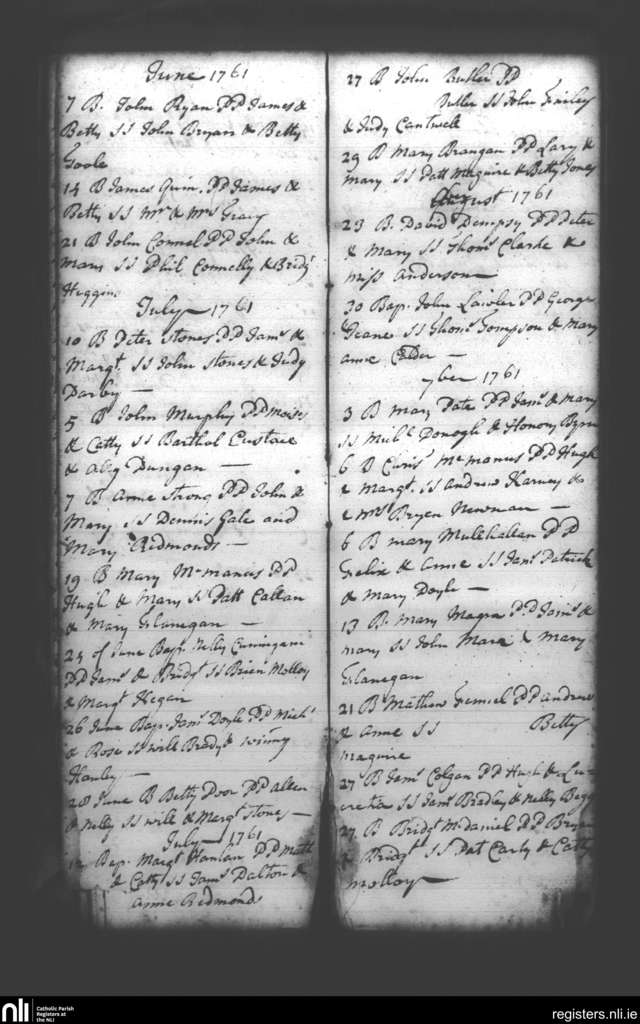 June 1761
7 B. John Ryan PP James &
Betty SS John Bryan & Betty
Toole
14 B James Quin PP James &
Betty SS Mr & Mrs Gray
21 B John Connel PP John &
Mary SS Phil Connelly & Bridgt
Higgins
July 1761
10 B Peter Stones PP Jams &
Margt SS John Stones & Judy
Darby
5 B John Murphy PP Moses
& Catty SS Barthol Eustace
& Dungan
7 B Anne Strong PP John &
Mary SS Dennis Gale and
Mary Redmonds
19 B Mary McManus PP
Hugh & Mary SS Patt Callan
& Mary Flanegan
24 of June Bapt Nelly Cuningam
PP Jams & Bridgt SS Brien Molloy
& Margt Hegan
26 June Bapt Jams Doyle PP Michl
& Rose SS Will Brady & Winny
Hanley
28 June B Betty Door PP Allen
& Nelly SS Will & Margt Stones
July 1761
12 Bap. Margt Hanlan PP Matt
& Catty SS Jams Dalton &
Anne Redmonds
27 B John Butler PP
Butler SS John
& Judy Cantwell
29 B Mary Brangan PP Lary &
Mary SS Patt Maguire & Betty Jones
August 1761
23 B. David Dempsy PP Peter
& Mary SS Thoms Clarke &
Miss Anderson
30 Bap. John Lawler PP George
Jeane SS Thoms Tompson & Mary
Anne Calder
7ber 1761
3 B Mary Pate PP Jams & Mary
SS Michl Donogh & Honory Byrn
6 B Chriss McManus PP Hugh
& Margt SS Andrew Harvey &
& Mrs Bryen Newman
6 B Mary Mulhallan PP
Felix & Anne SS Jams Patrick
& Mary Doyle
13 B. Mary Magra PP Jams &
Mary SS John Mara & Mary
Flanegan
21 B Mathew Fennel PP Andrew
& Anne SS Betty
Maguire
27 B Jams Colgan PP Hugh & Lu-
cretia SS Jams Bradley & Nelly Beggs
27 B Bridgt McDaniel PP Bryan
& Bridgt SS Pat Carty & Catty
Molloy
nli
Catholic Parish
Registers at
the NLI
registers.nli.ie